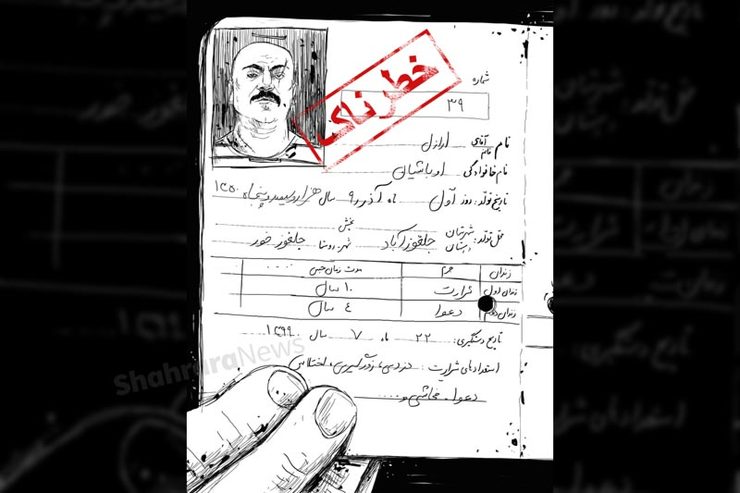 شماره
۳۹
خطرناک
نام آقای خانم اراذل
نام خانوادگی اوباشیان
تاریخ تولد: روز اول ماه آذر ۹ سال هزار و سیصد و پنجاه ۱۳۵۰
محل تولد: شهرستان دبستان جلغوزآباد بخش شهر، روستا جلغوز خور
زندان جرم مدت زمان حبس
زندان اول شرارت ۱۰ سال
زندان دوم دعوا ٤ سال
تاریخ دستگیری: ۲۲ ماه ۷ سال ۱۳۹۹
استعدادهای شرارت: دزدی، زورگیری، اختلاس
دعوا، فحاشی و....
ShahraraNews